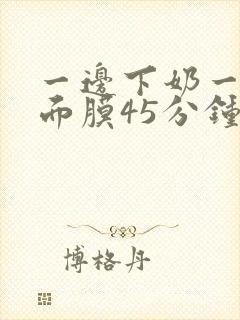 一邊下奶一
而膜45分鍾
博格丹